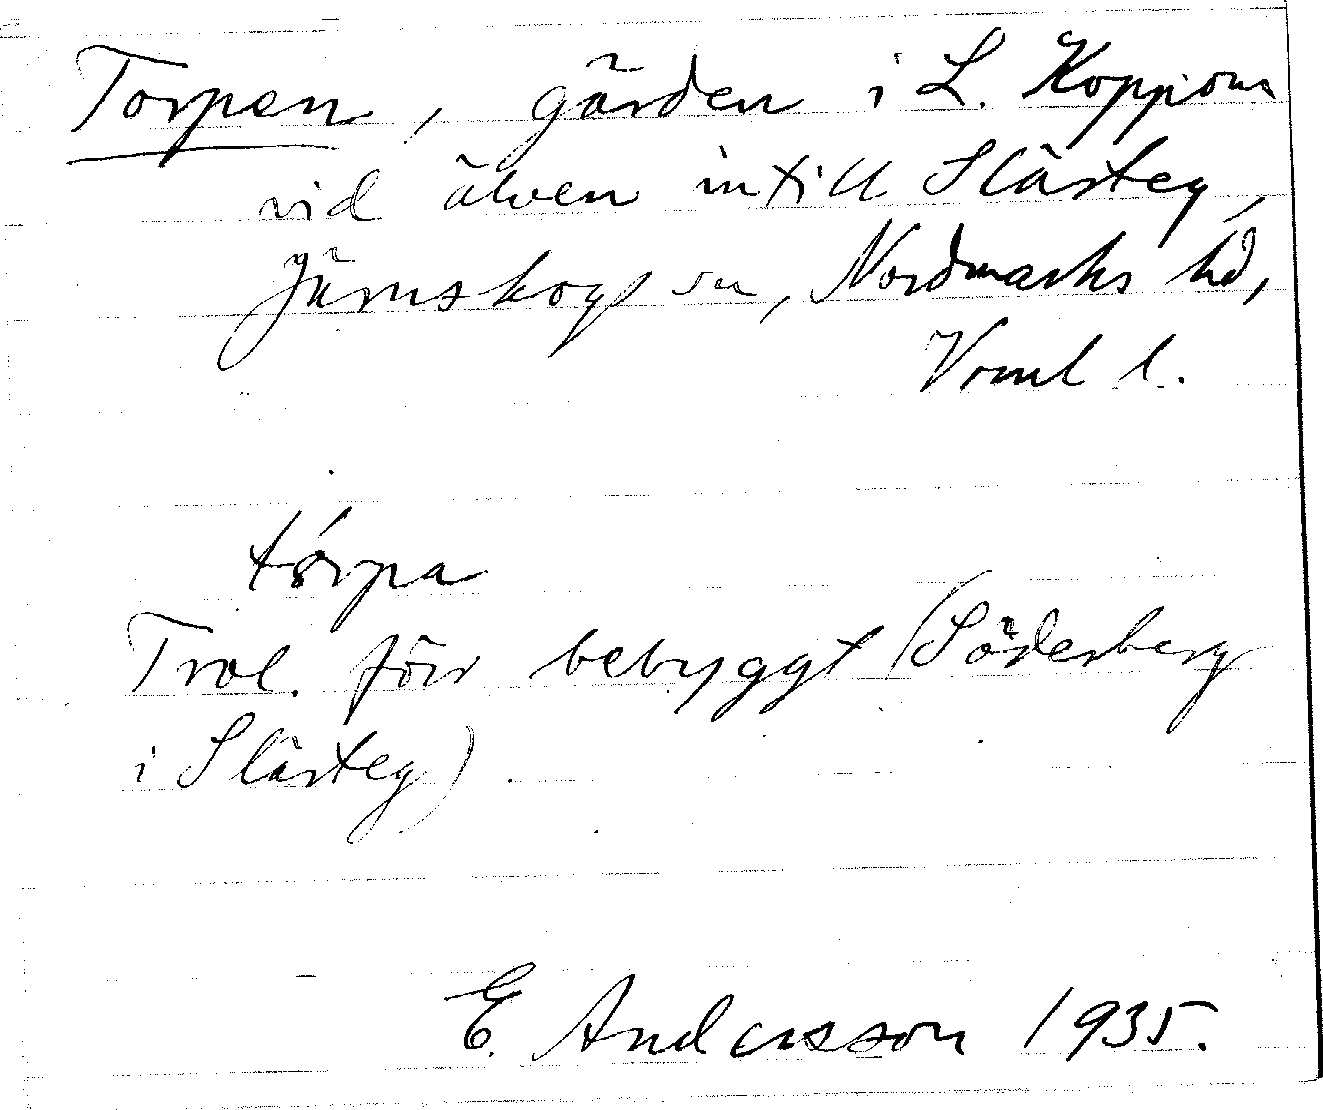 Torpan, gärden i L. Koppom
vid älven intill Slästeg,
Järnskogs sn, Nordmarks hd,
Vrml l.
tórpa
Trol. förr bebyggt (Söderberg
i Slästeg)
E. Andersson 1935.